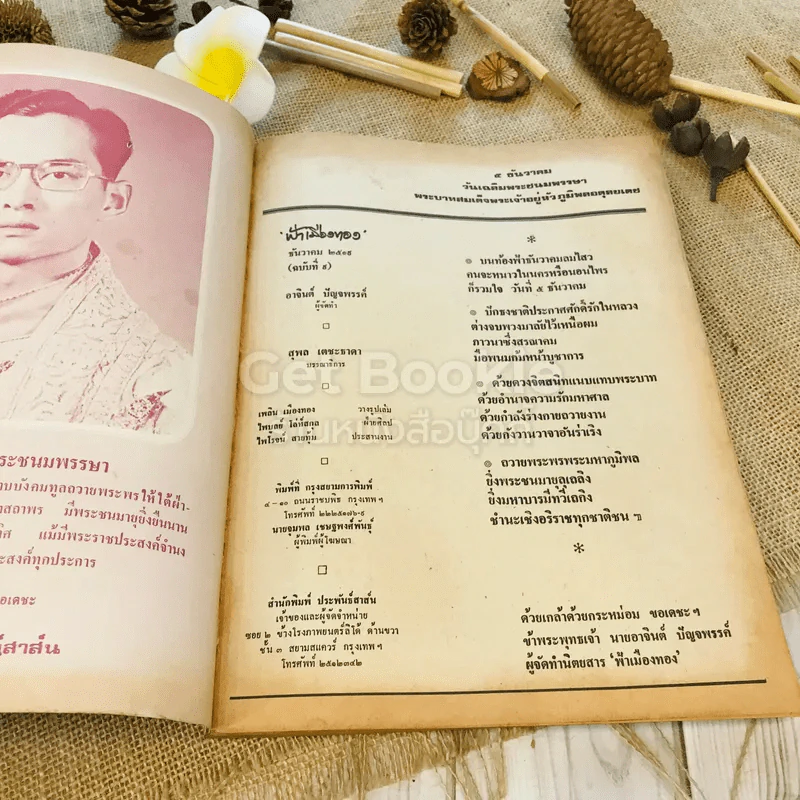 ระชนมพรรษา
าบบังคมทูลถวายพระพรให้ใต้ฝ่า-
งสลาพร มีพระชนมายุยิ่งยืนนาน
ทิศ แม้มีพระราชประสงค์จำนง
ะสงค์ทุกประการ
อเดชะ
์สาส์น
๕ ธันวาคม
วันเฉลิมพระชนมพรรษา
พระบาทสมเด็จพระเจ้าอยู่หัวภูมิพลอดุลยเดช
'ฟ้าเมืองทอง'
ธันวาคม ๒๕๑๙
(ฉบับที่ ๙)
อาจินต์ ปัญจพรรค์
ผู้จัดทำ
สุพล เตชะธาดา
บรรณาธิการ
เพลิน เมืองทอง วางรูปเล่ม
ไพบูลย์ โล่ห์สกุล ฝ่ายศิลป์
ไพโรจน์ สายทุ้ม ประสานงาน
พิมพ์ที่ กรุงสยามการพิมพ์
๔-๑๐ ถนนราชบพิธ กรุงเทพฯ
โทรศัพท์ ๒๒๒๕๑๗๖-๙
นายจุมพล เชษฐพงศ์พันธุ์
ผู้พิมพ์ผู้โฆษณา
สำนักพิมพ์ ประพันธ์สาส์น
เจ้าของและผู้จัดจำหน่าย
ซอย ๒ ข้างโรงภาพยนตร์ลิโด้ ด้านขวา
ชั้น ๓ สยามสแควร์ กรุงเทพฯ
โทรศัพท์ ๒๕๑๒๓๔๒
บนท้องฟ้าธันวาคมลมไสว
คนจะหนาวในนครหรือนอนไพร
ก็รวมใจ วันที่ ๕ ธันวาคม
ปักธงชาติประกาศศักดิ์รักในหลวง
ต่างจบพวงมาลัยไว้เหนือผม
ภาวนาซึ่งสรณาคม
มือพนมก้มหน้าบูชาการ
ด้วยดวงจิตสนิทแนบแทบพระบาท
ด้วยอำนาจความรักมหาศาล
ด้วยกำลังร่างกายถวายงาน
ด้วยกังวานวาจาอันร่าเริง
ถวายพระพรพระมหาภูมิพล
ยิ่งพระชนมายุเถลิง
ยิ่งมหาบารมีทวีไถกิง
ชำนะเชิงอริราชทุกชาติชน ฯ
ด้วยเกล้าด้วยกระหม่อม ขอเดชะฯ
ข้าพระพุทธเจ้า นายอาจินต์ ปัญจพรรค์
ผู้จัดทำนิตยสาร 'ฟ้าเมืองทอง'
Get Bookie